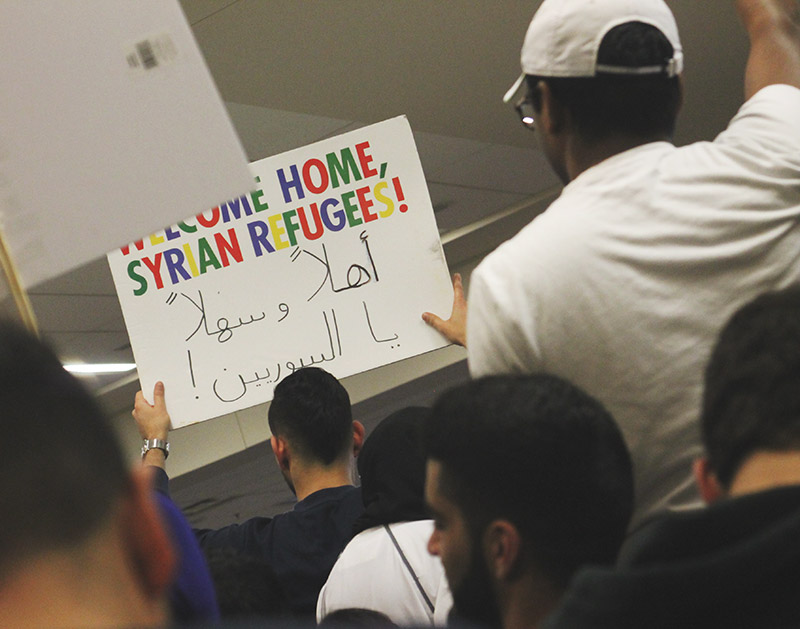 WELCOME HOME,
SYRIAN REFUGEES!
أهلاً و سهلاً
يا السوريين !